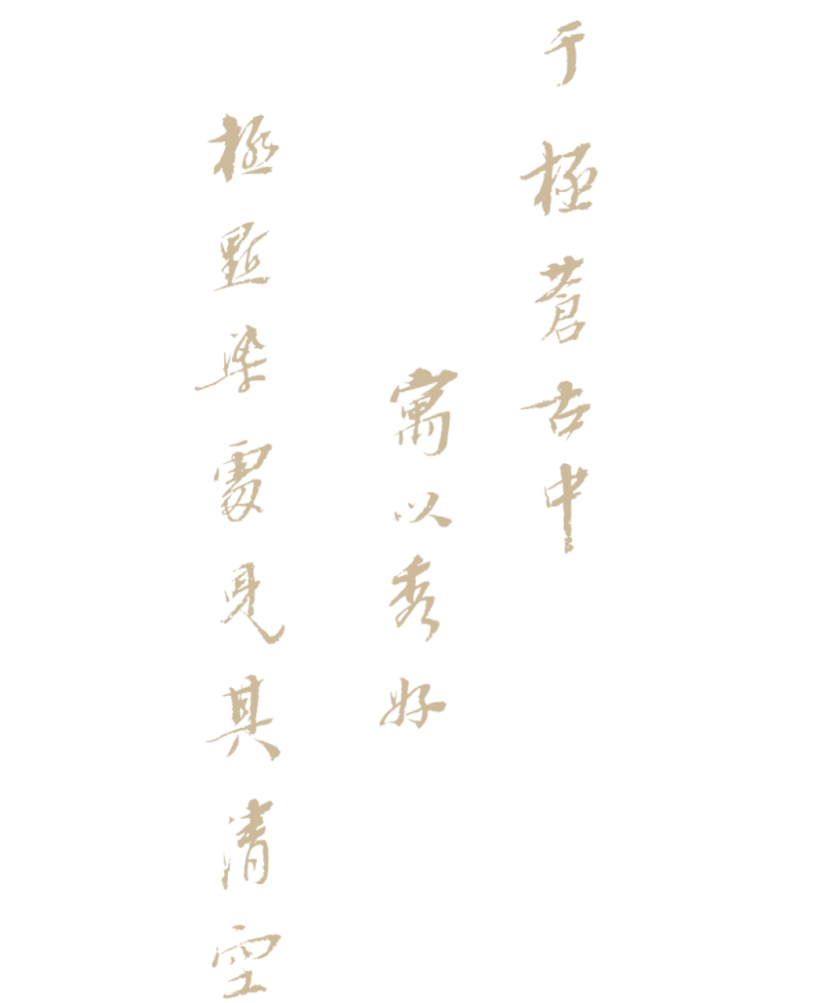 于極蒼古中
寓以秀好
極點染處見其清空